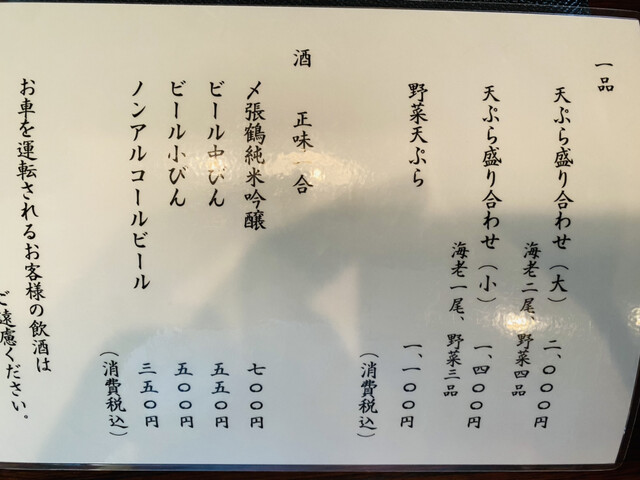 一品
天ぷら盛り合わせ（大） 二、〇〇〇円
海老二尾、野菜四品
天ぷら盛り合わせ（小） 一、四〇〇円
海老一尾、野菜三品
野菜天ぷら 一、一〇〇円
（消費税込）
酒 正味一合
〆張鶴純米吟醸 七〇〇円
ビール中びん 五五〇円
ビール小びん 五〇〇円
ノンアルコールビール 三五〇円
（消費税込）
お車を運転されるお客様の飲酒は
ご遠慮ください。